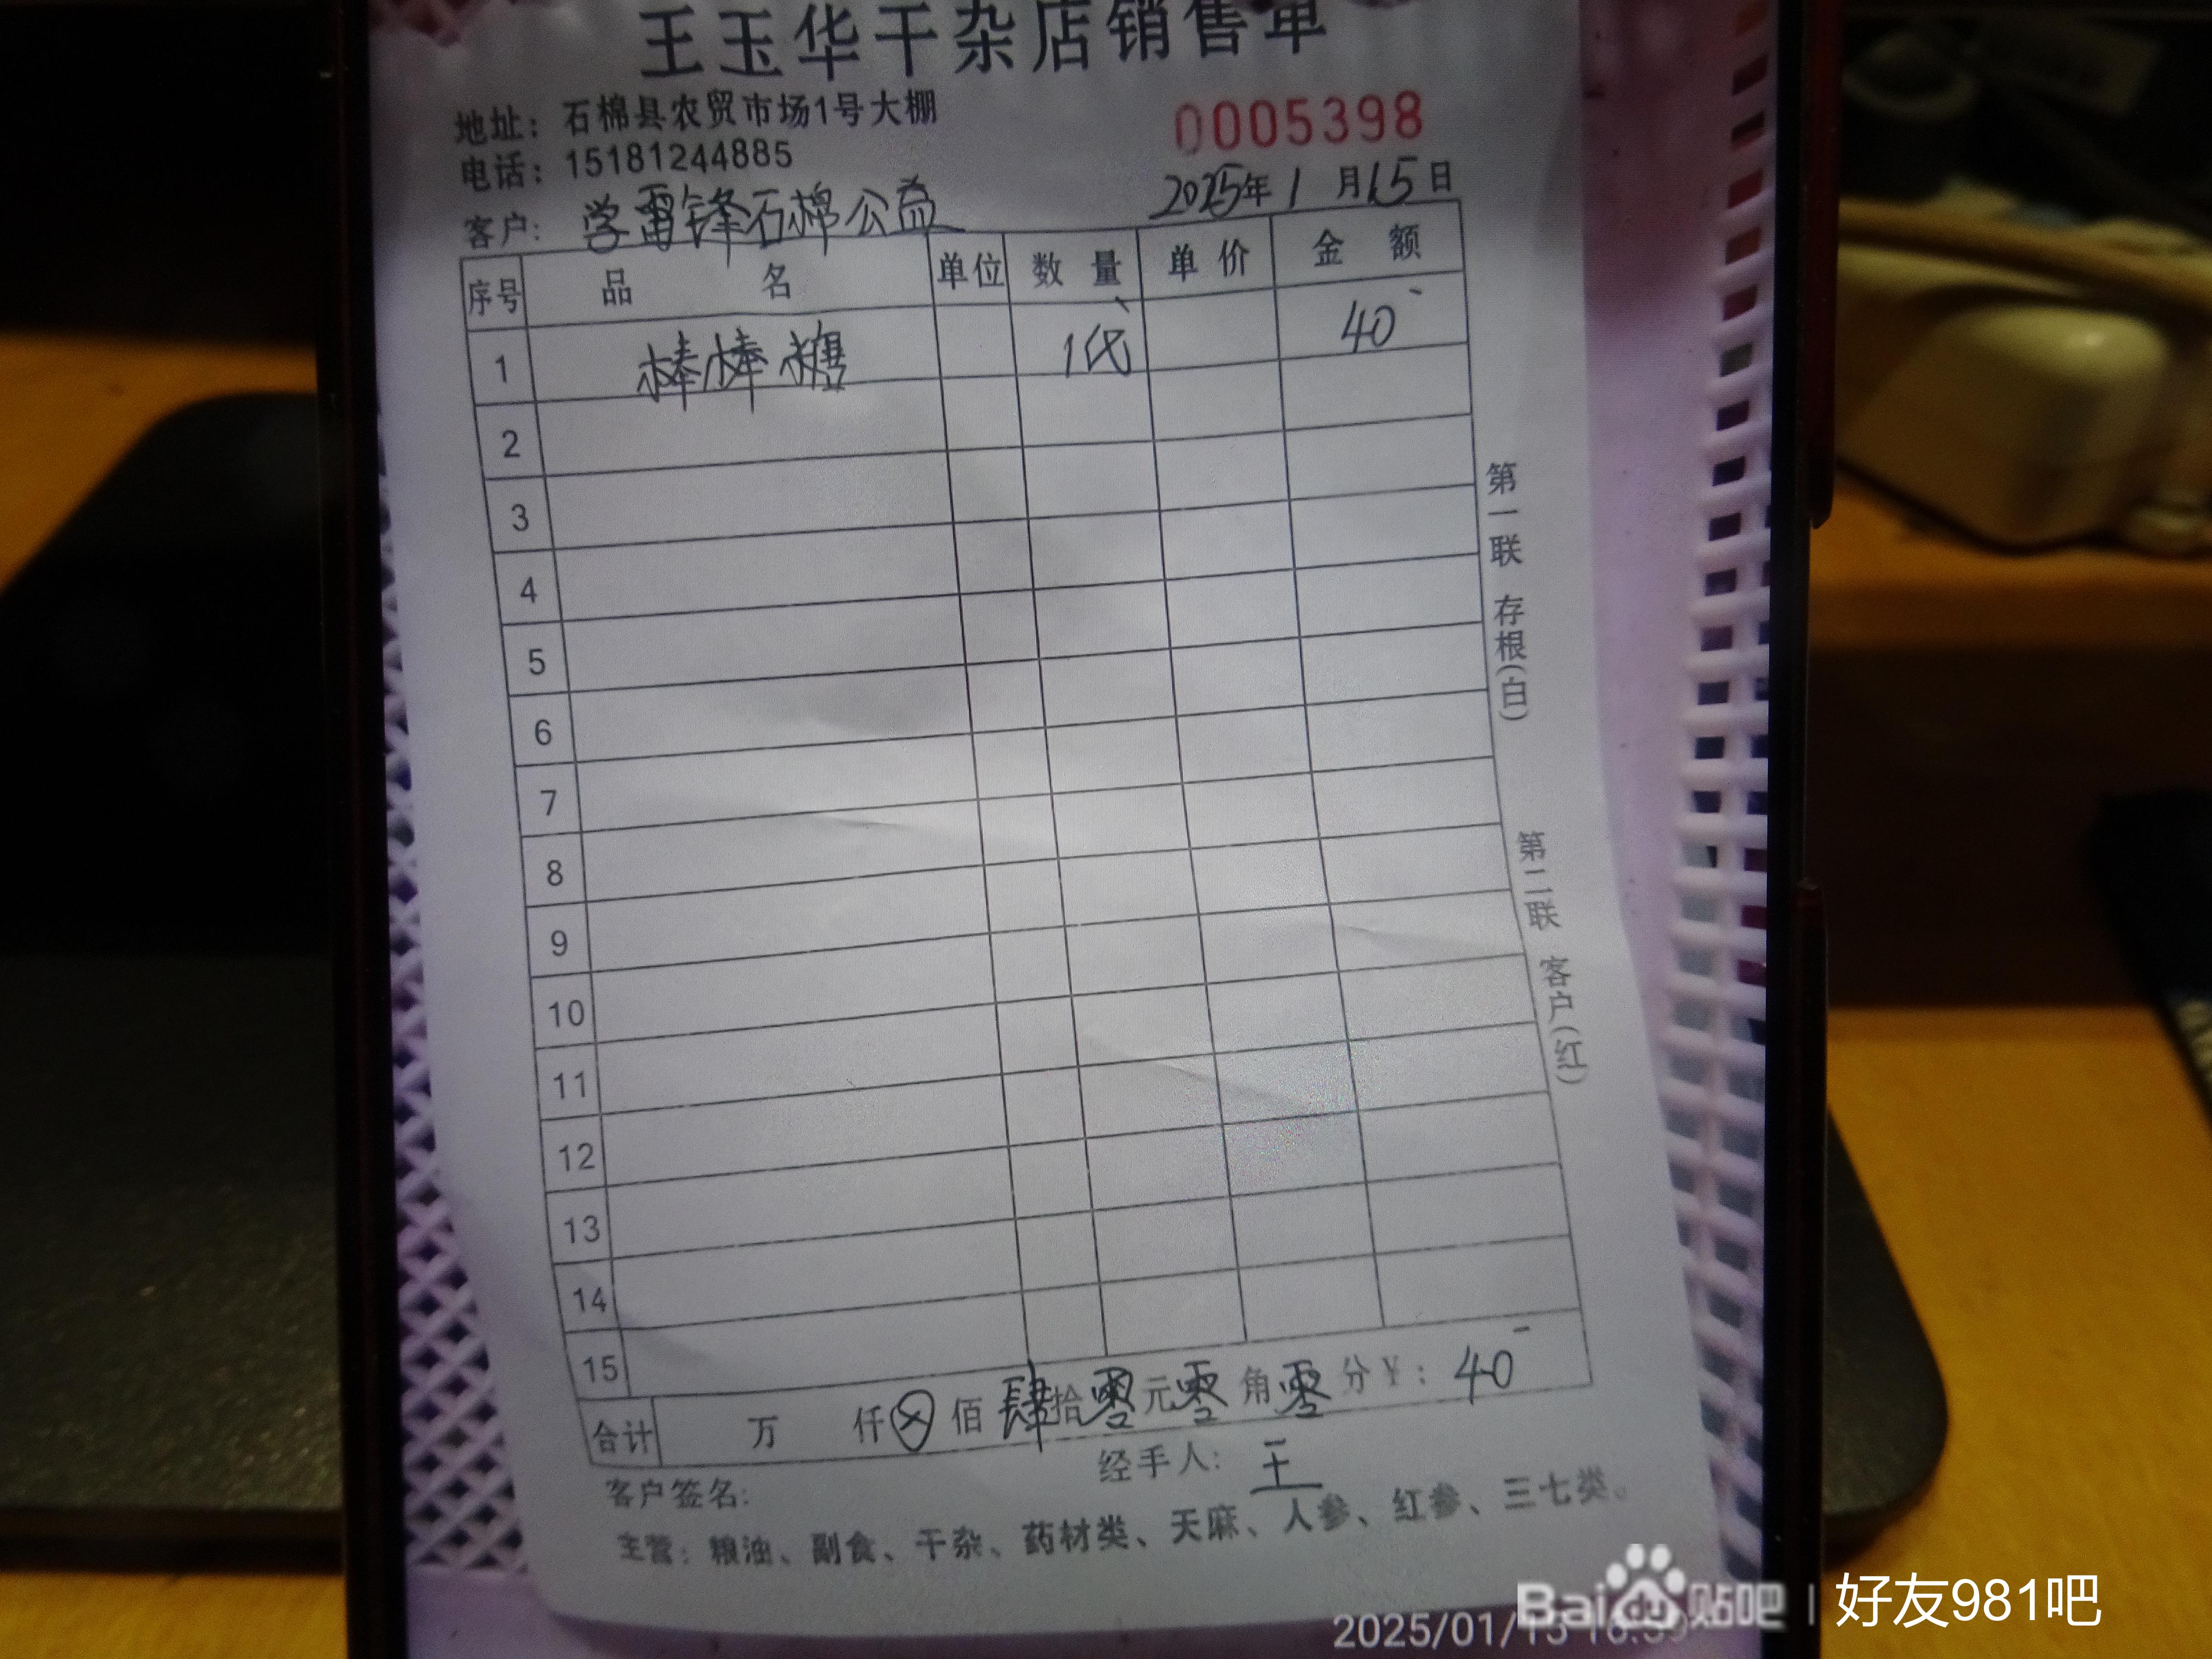 王玉华干杂店销售单
地址：石棉县农贸市场1号大棚
0005398
电话：15181244885
2025年1月15日
客户：学雷锋石棉公益
序号 品名 单位 数量 单价 金额
1 棒棒糖 1代 40
2
3
4
5
6
7
8
9
10
11
12
13
14
15
合计 万 仟 佰 肆拾零元零角零分￥：40
客户签名： 经手人：王
主营：粮油、副食、干杂、药材类、天麻、人参、红参、三七类、
第一联 存根(白)
第二联 客户(红)
2025/01/15
Baidu贴吧 | 好友981吧